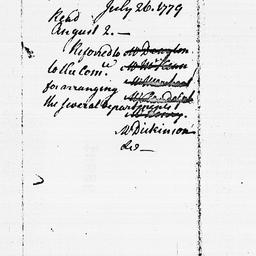 July 26. 1779
Read
August 2. —
Referred to Mr Drayton
to the Com.ee Mr McKean
for arranging Mr Marchant
the several departments Mr Randolph
Mr Dickinson
&c —